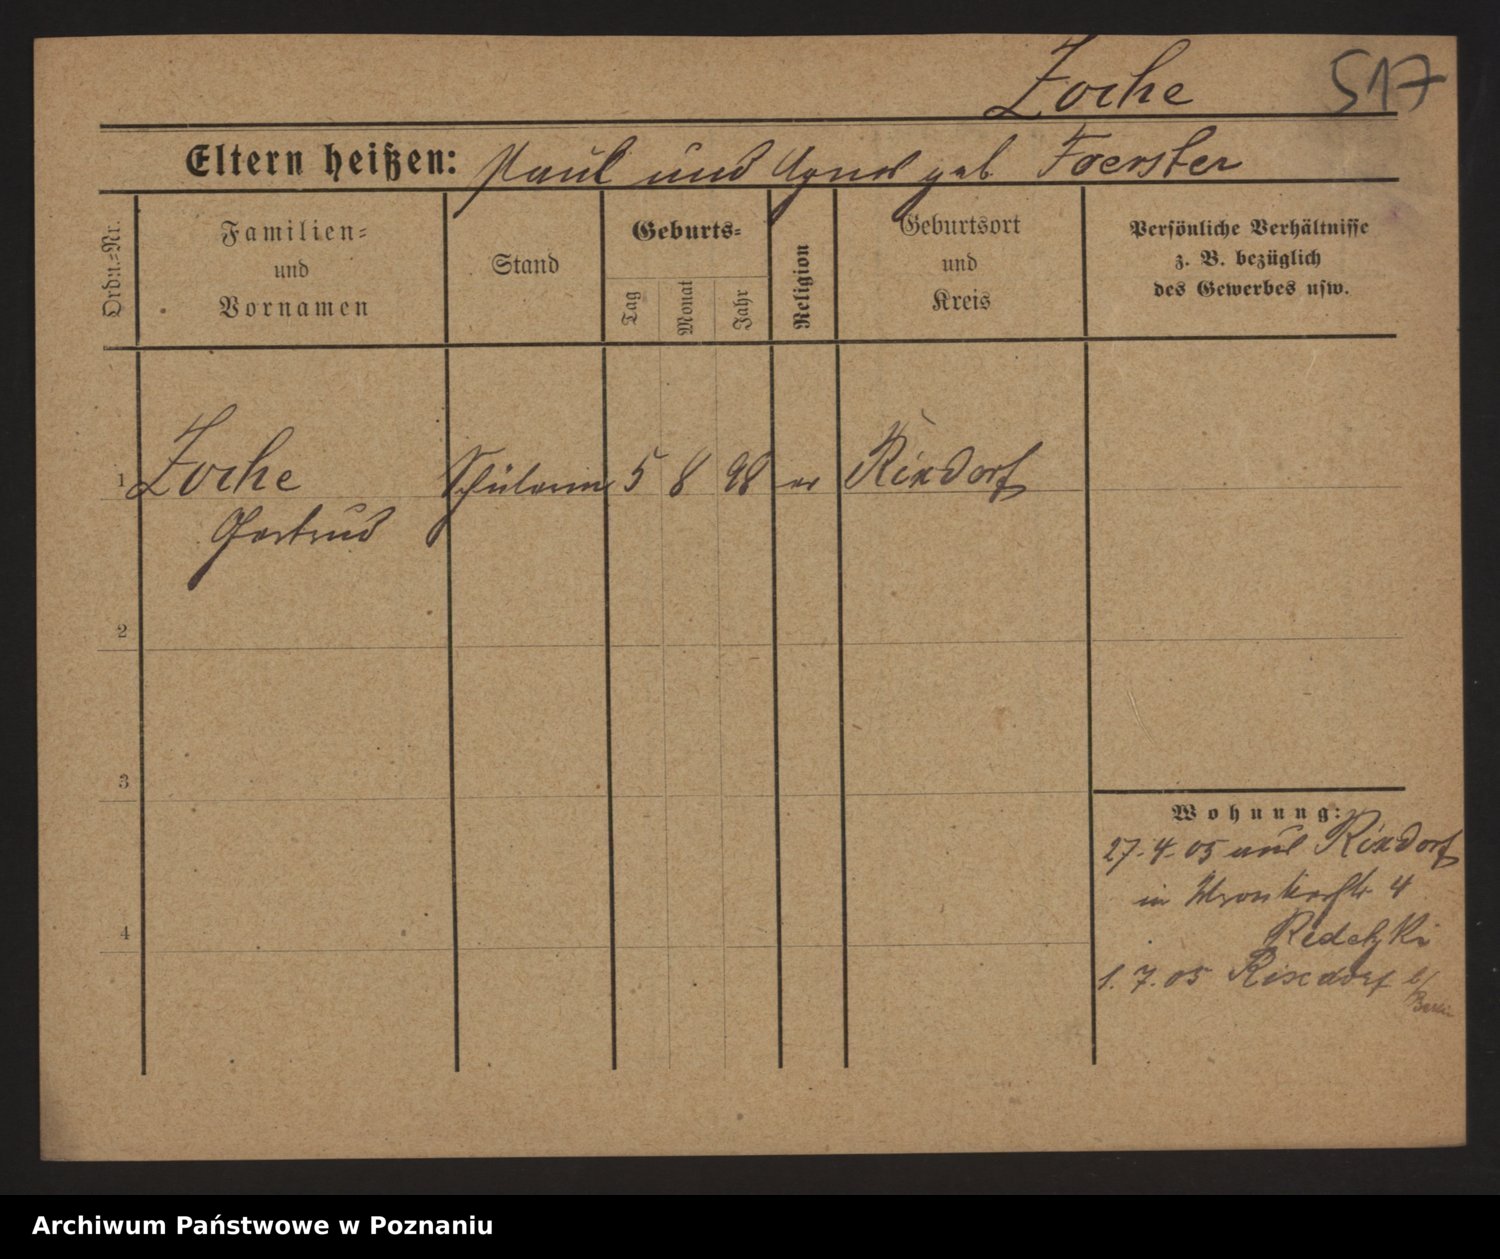 Zoche 517
Eltern heißen: Paul und Agnes geb Foerster
Ordn.=Nr.
Familien=
und
Vornamen
Stand
Geburts=
Tag
Monat
Jahr
Religion
Geburtsort
und
Kreis
Persönliche Verhältnisse
z. B. bezüglich
des Gewerbes usw.
1 Zoche Schülerin 5 8 98 ev Rixdorf
Gertrud
2
3
4
Wohnung:
27. 4. 05 aus Rixdorf
in Wronkerstr 4
1. 7. 05 Rixdorf b/
Berlin
Archiwum Państwowe w Poznaniu